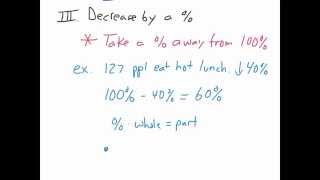 III Decrease by a %
* Take a % away from 100%
ex. 127 ppl eat hot lunch. ↓40%
100% - 40% = 60%
% whole = part